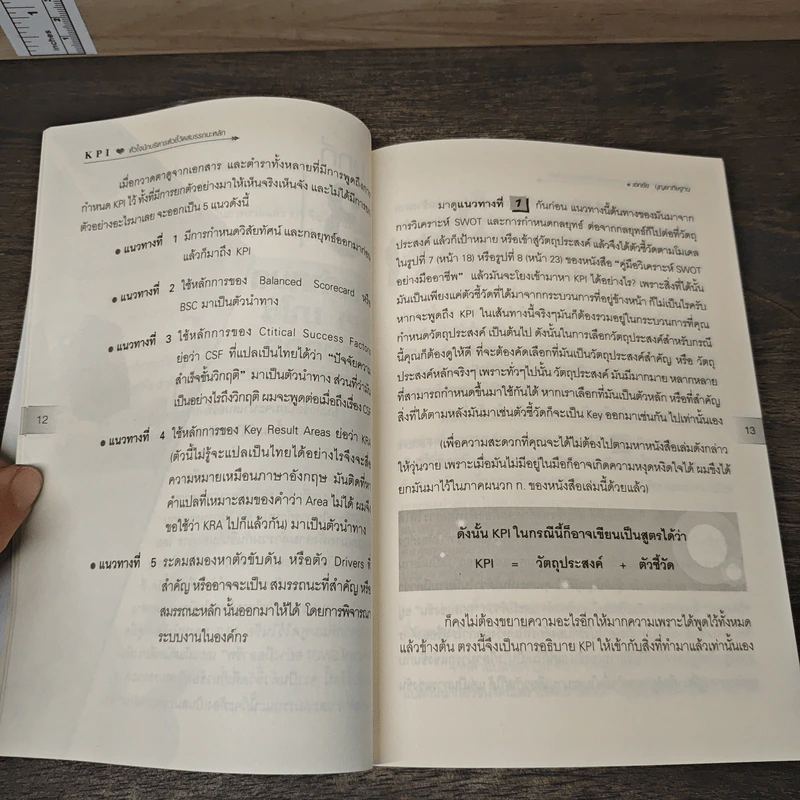 Inches
1
2
KPI หัวใจนักบริหารตัวชี้วัดสมรรถนะหลัก
เมื่อกวาดตาดูจากเอกสาร และตำราทั้งหลายที่มีการพูดถึงการ
กำหนด KPI ไว้ ทั้งที่มีการยกตัวอย่างมาให้เห็นจริงเห็นจัง และไม่ได้มีการยก
ตัวอย่างอะไรมาเลย จะออกเป็น 5 แนวดังนี้
● แนวทางที่ 1 มีการกำหนดวิสัยทัศน์ และกลยุทธ์ออกมาก่อน
แล้วก็มาถึง KPI
● แนวทางที่ 2 ใช้หลักการของ Balanced Scorecard หรือ
BSC มาเป็นตัวนำทาง
● แนวทางที่ 3 ใช้หลักการของ Ctitical Success Factors
ย่อว่า CSF ที่แปลเป็นไทยได้ว่า “ปัจจัยความ
สำเร็จขั้นวิกฤติ” มาเป็นตัวนำทาง ส่วนที่ว่ามัน
เป็นอย่างไรถึงวิกฤติ ผมจะพูดต่อเมื่อถึงเรื่อง CSF
12
● แนวทางที่ 4 ใช้หลักการของ Key Result Areas ย่อว่า KRA
(ตัวนี้ไม่รู้จะแปลเป็นไทยได้อย่างไรจึงจะสื่อ
ความหมายเหมือนภาษาอังกฤษ มันติดที่หา
คำแปลที่เหมาะสมของคำว่า Area ไม่ได้ ผมจึง
ขอใช้ว่า KRA ไปก็แล้วกัน) มาเป็นตัวนำทาง
● แนวทางที่ 5 ระดมสมองหาตัวขับดัน หรือตัว Drivers ที่
สำคัญ หรืออาจจะเป็น สมรรถนะที่สำคัญ หรือ
สมรรถนะหลัก นั้นออกมาให้ได้ โดยการพิจารณา
ระบบงานในองค์กร
● เอกชัย บุญยาทิษฐาน
มาดูแนวทางที่ 1 กันก่อน แนวทางนี้ต้นทางของมันมาจาก
การวิเคราะห์ SWOT และการกำหนดกลยุทธ์ ต่อจากกลยุทธ์ก็ไปต่อที่วัตถุ
ประสงค์ แล้วก็เป้าหมาย หรือเข้าสู่วัตถุประสงค์ แล้วจึงได้ตัวชี้วัดตามโมเดล
ในรูปที่ 7 (หน้า 18) หรือรูปที่ 8 (หน้า 23) ของหนังสือ “คู่มือวิเคราะห์ SWOT
อย่างมืออาชีพ” แล้วมันจะโยงเข้ามาหา KPI ได้อย่างไร? เพราะสิ่งที่ได้นั้น
มันเป็นเพียงแค่ตัวชี้วัดที่ได้มาจากกระบวนการที่อยู่ข้างหน้า ก็ไม่เป็นไรครับ
หากจะพูดถึง KPI ในเส้นทางนี้จริงๆมันก็ต้องรวมอยู่ในกระบวนการที่คุณ
กำหนดวัตถุประสงค์ เป็นต้นไป ดังนั้นในการเลือกวัตถุประสงค์สำหรับกรณี
นี้คุณก็ต้องดูให้ดี ที่จะต้องคัดเลือกที่มันเป็นวัตถุประสงค์สำคัญ หรือ วัตถุ
ประสงค์หลักจริงๆ เพราะทั่วๆไปนั้น วัตถุประสงค์ มันมีมากมาย หลากหลาย
ที่สามารถกำหนดขึ้นมาใช้กันได้ หากเราเลือกที่มันเป็นตัวหลัก หรือที่สำคัญ
สิ่งที่ได้ตามหลังมันมาเช่นตัวชี้วัดก็จะเป็น Key ออกมาเช่นกัน ไปเท่านั้นเอง
13
(เพื่อความสะดวกที่คุณจะได้ไม่ต้องไปตามหาหนังสือเล่มดังกล่าว
ให้วุ่นวาย เพราะเมื่อมันไม่มีอยู่ในมือก็อาจเกิดความหงุดหงิดใจได้ ผมจึงได้
ยกมันมาไว้ในภาคผนวก ก. ของหนังสือเล่มนี้ด้วยแล้ว)
ดังนั้น KPI ในกรณีนี้ก็อาจเขียนเป็นสูตรได้ว่า
KPI = วัตถุประสงค์ + ตัวชี้วัด
ก็คงไม่ต้องขยายความอะไรอีกให้มากความเพราะได้พูดไว้ทั้งหมด
แล้วข้างต้น ตรงนี้จึงเป็นการอธิบาย KPI ให้เข้ากับสิ่งที่ทำมาแล้วเท่านั้นเอง